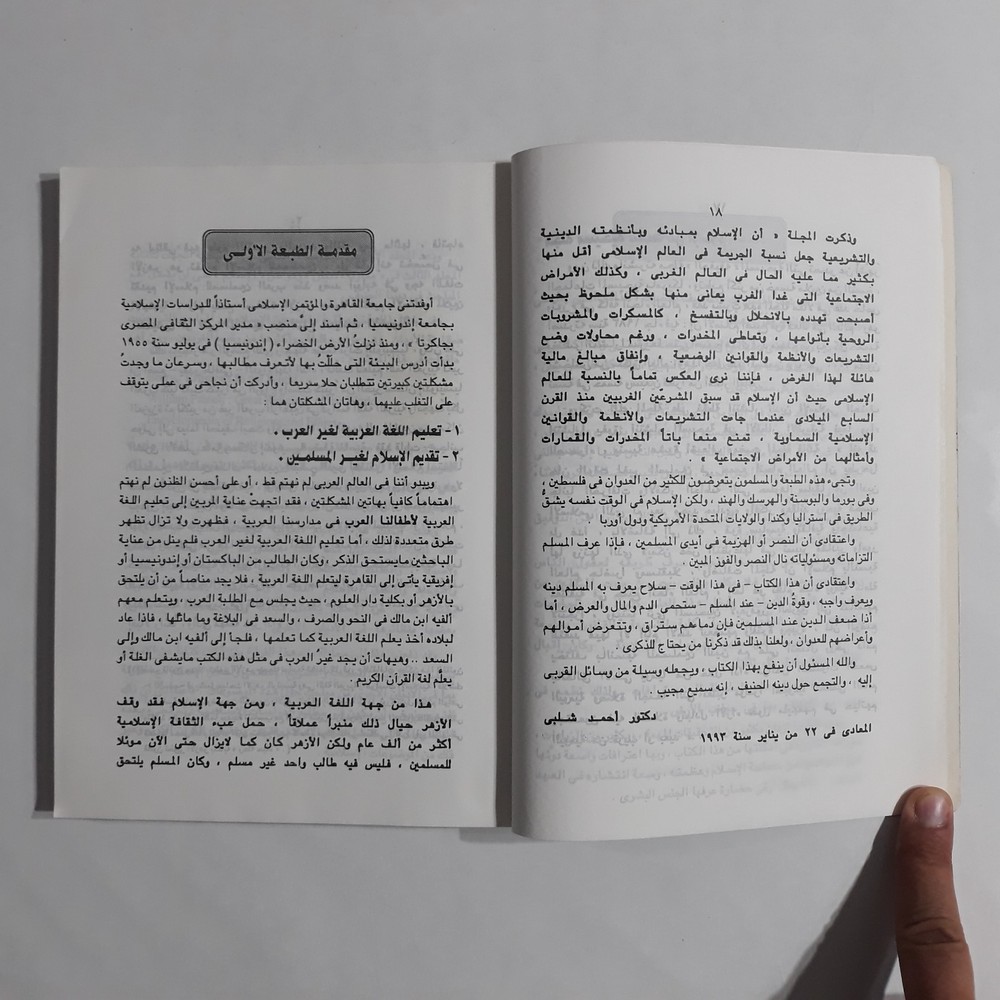 ١٨
وذكرت المجلة « أن الإسلام بمبادئه وبأنظمته الدينية
والتشريعية جعل نسبة الجريمة فى العالم الإسلامى أقل منها
بكثير مما عليه الحال فى العالم الغربى ، وكذلك الأمراض
الاجتماعية التى غدا الغرب يعانى منها بشكل ملحوظ بحيث
أصبحت تهدده بالانحلال وبالتفسخ ، كالمسكرات والمشروبات
الروحية بأنواعها ، وتعاطى المخدرات ، ورغم محاولات وضع
التشريعات والأنظمة والقوانين الوضعية ، وإنفاق مبالغ مالية
هائلة لهذا الغرض ، فإننا نرى العكس تماماً بالنسبة للعالم
الإسلامى حيث أن الإسلام قد سبق المشرعين الغربيين منذ القرن
السابع الميلادى عندما جاءت التشريعات والأنظمة والقوانين
الإسلامية السماوية ، تمنع منعا باتاً المخدرات والقمارات
وأمثالهما من الأمراض الاجتماعية » .
وتجىء هذه الطبعة والمسلمون يتعرضون للكثير من العدوان فى فلسطين ،
وفى بورما والبوسنة والهرسك والهند ، ولكن الإسلام فى الوقت نفسه يشقُّ
الطريق فى استراليا وكندا والولايات المتحدة الأمريكية ودول أوربا
واعتقادى أن النصر أو الهزيمة فى أيدى المسلمين ، فإذا عرف المسلم
التزاماته ومسئولياته نال النصر والفوز المبين .
واعتقادى أن هذا الكتاب – فى هذا الوقت – سلاح يعرف به المسلم دينه
ويعرف واجبه ، وقوةُ الدين – عند المسلم – ستحمى الدم والمال والعرض ، أما
أذا ضعف الدين عند المسلمين فإن دماءهم ستراق ، وتتعرض أموالهم
وأعراضهم للعدوان ، ولعلنا بذلك قد ذكَّرنا من يحتاج للذكرى .
والله المسئول أن ينفع بهذا الكتاب ، ويجعله وسيلة من وسائل القربى
إليه ، والتجمع حول دينه الحنيف ، إنه سميع مجيب .
دكتور أحمد شلبى
المعادى فى ٢٢ من يناير سنة ١٩٩٣
مقدمة الطبعة الأولى
أوفدتنى جامعة القاهرة والمؤتمر الإسلامى أستاذاً للدراسات الإسلامية
بجامعة إندونيسيا ، ثم أسند إلىَّ منصب « مدير المركز الثقافى المصرى
بجاكرتا » ، ومنذ نزلتُ الأرض الخضراء ( إندونيسيا ) فى يوليو سنة ١٩٥٥
بدأت أدرس البيئة التى حلَلْتُ بها لأتعرف مطالبها ، وسرعان ما وجدتُ
مشكلتين كبيرتين تتطلبان حلا سريعا ، وأدركت أن نجاحى فى عملى يتوقف
على التغلب عليهما ، وهاتان المشكلتان هما :
١ - تعليم اللغة العربية لغير العرب .
٢ - تقديم الإسلام لغير المسلمين .
ويبدو أننا فى العالم العربى لم نهتم قط ، أو على أحسن الظنون لم نهتم
اهتماماً كافياً بهاتين المشكلتين ، فقد اتجهتْ عناية المربين إلى تعليم اللغة
العربية لأطفالنا العرب فى مدارسنا العربية ، فظهرت ولا تزال تظهر
طرق متعددة لذلك ، أما تعليم اللغة العربية لغير العرب فلم ينل من عناية
الباحثين مايستحق الذكر ، وكان الطالب من الباكستان أو إندونيسيا أو
إفريقية يأتى إلى القاهرة ليتعلم اللغة العربية ، فلا يجد مناصاً من أن يلتحق
بالأزهر أو بكلية دار العلوم ، حيث يجلس مع الطلبة العرب ، ويتعلم معهم
ألفيه ابن مالك فى النحو والصرف ، والسعد فى البلاغة وما ماثلها ، فاذا عاد
لبلاده أخذ يعلم اللغة العربية كما تعلمها ، فلجأ إلى ألفيه ابن مالك وإلى
السعد .. وهيهات أن يجد غيرُ العرب فى مثل هذه الكتب مايشفى الغلة أو
يعلَّم لغة القرآن الكريم .
هذا من جهة اللغة العربية ، ومن جهة الإسلام فقد وقف
الأزهر حيال ذلك منبراً عملاقاً ، حمل عبء الثقافة الإسلامية
أكثر من ألف عام ولكن الأزهر كان كما لايزال حتى الآن موئلا
للمسلمين ، فليس فيه طالب واحد غير مسلم ، وكان المسلم يلتحق